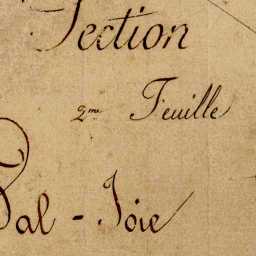 Section
2me Feuille
Val-Joie